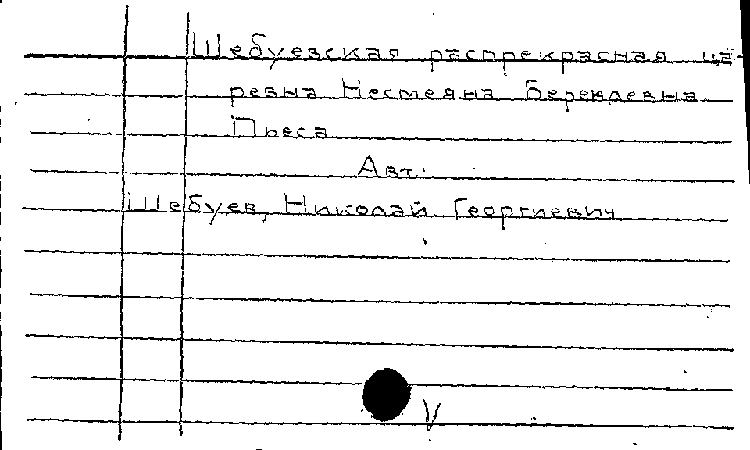 Шебуевская распрекрасная ца-
ревна Несмеяна Берендевна
Пьеса
Авт.
Шебуев, Николай Георгиевич
V